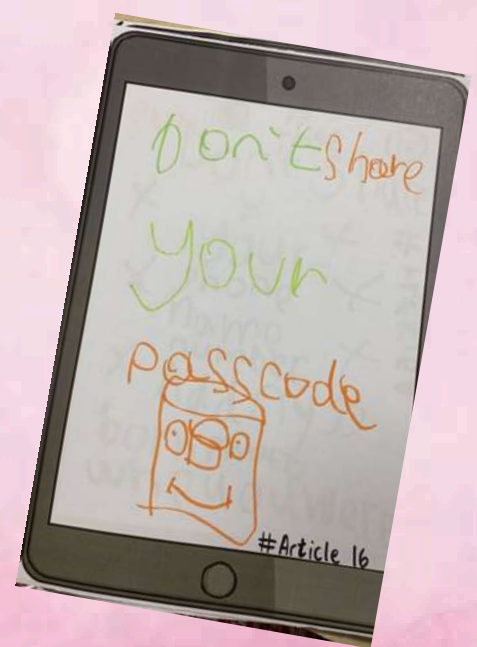 Don't share
your
passcode
#Article 16